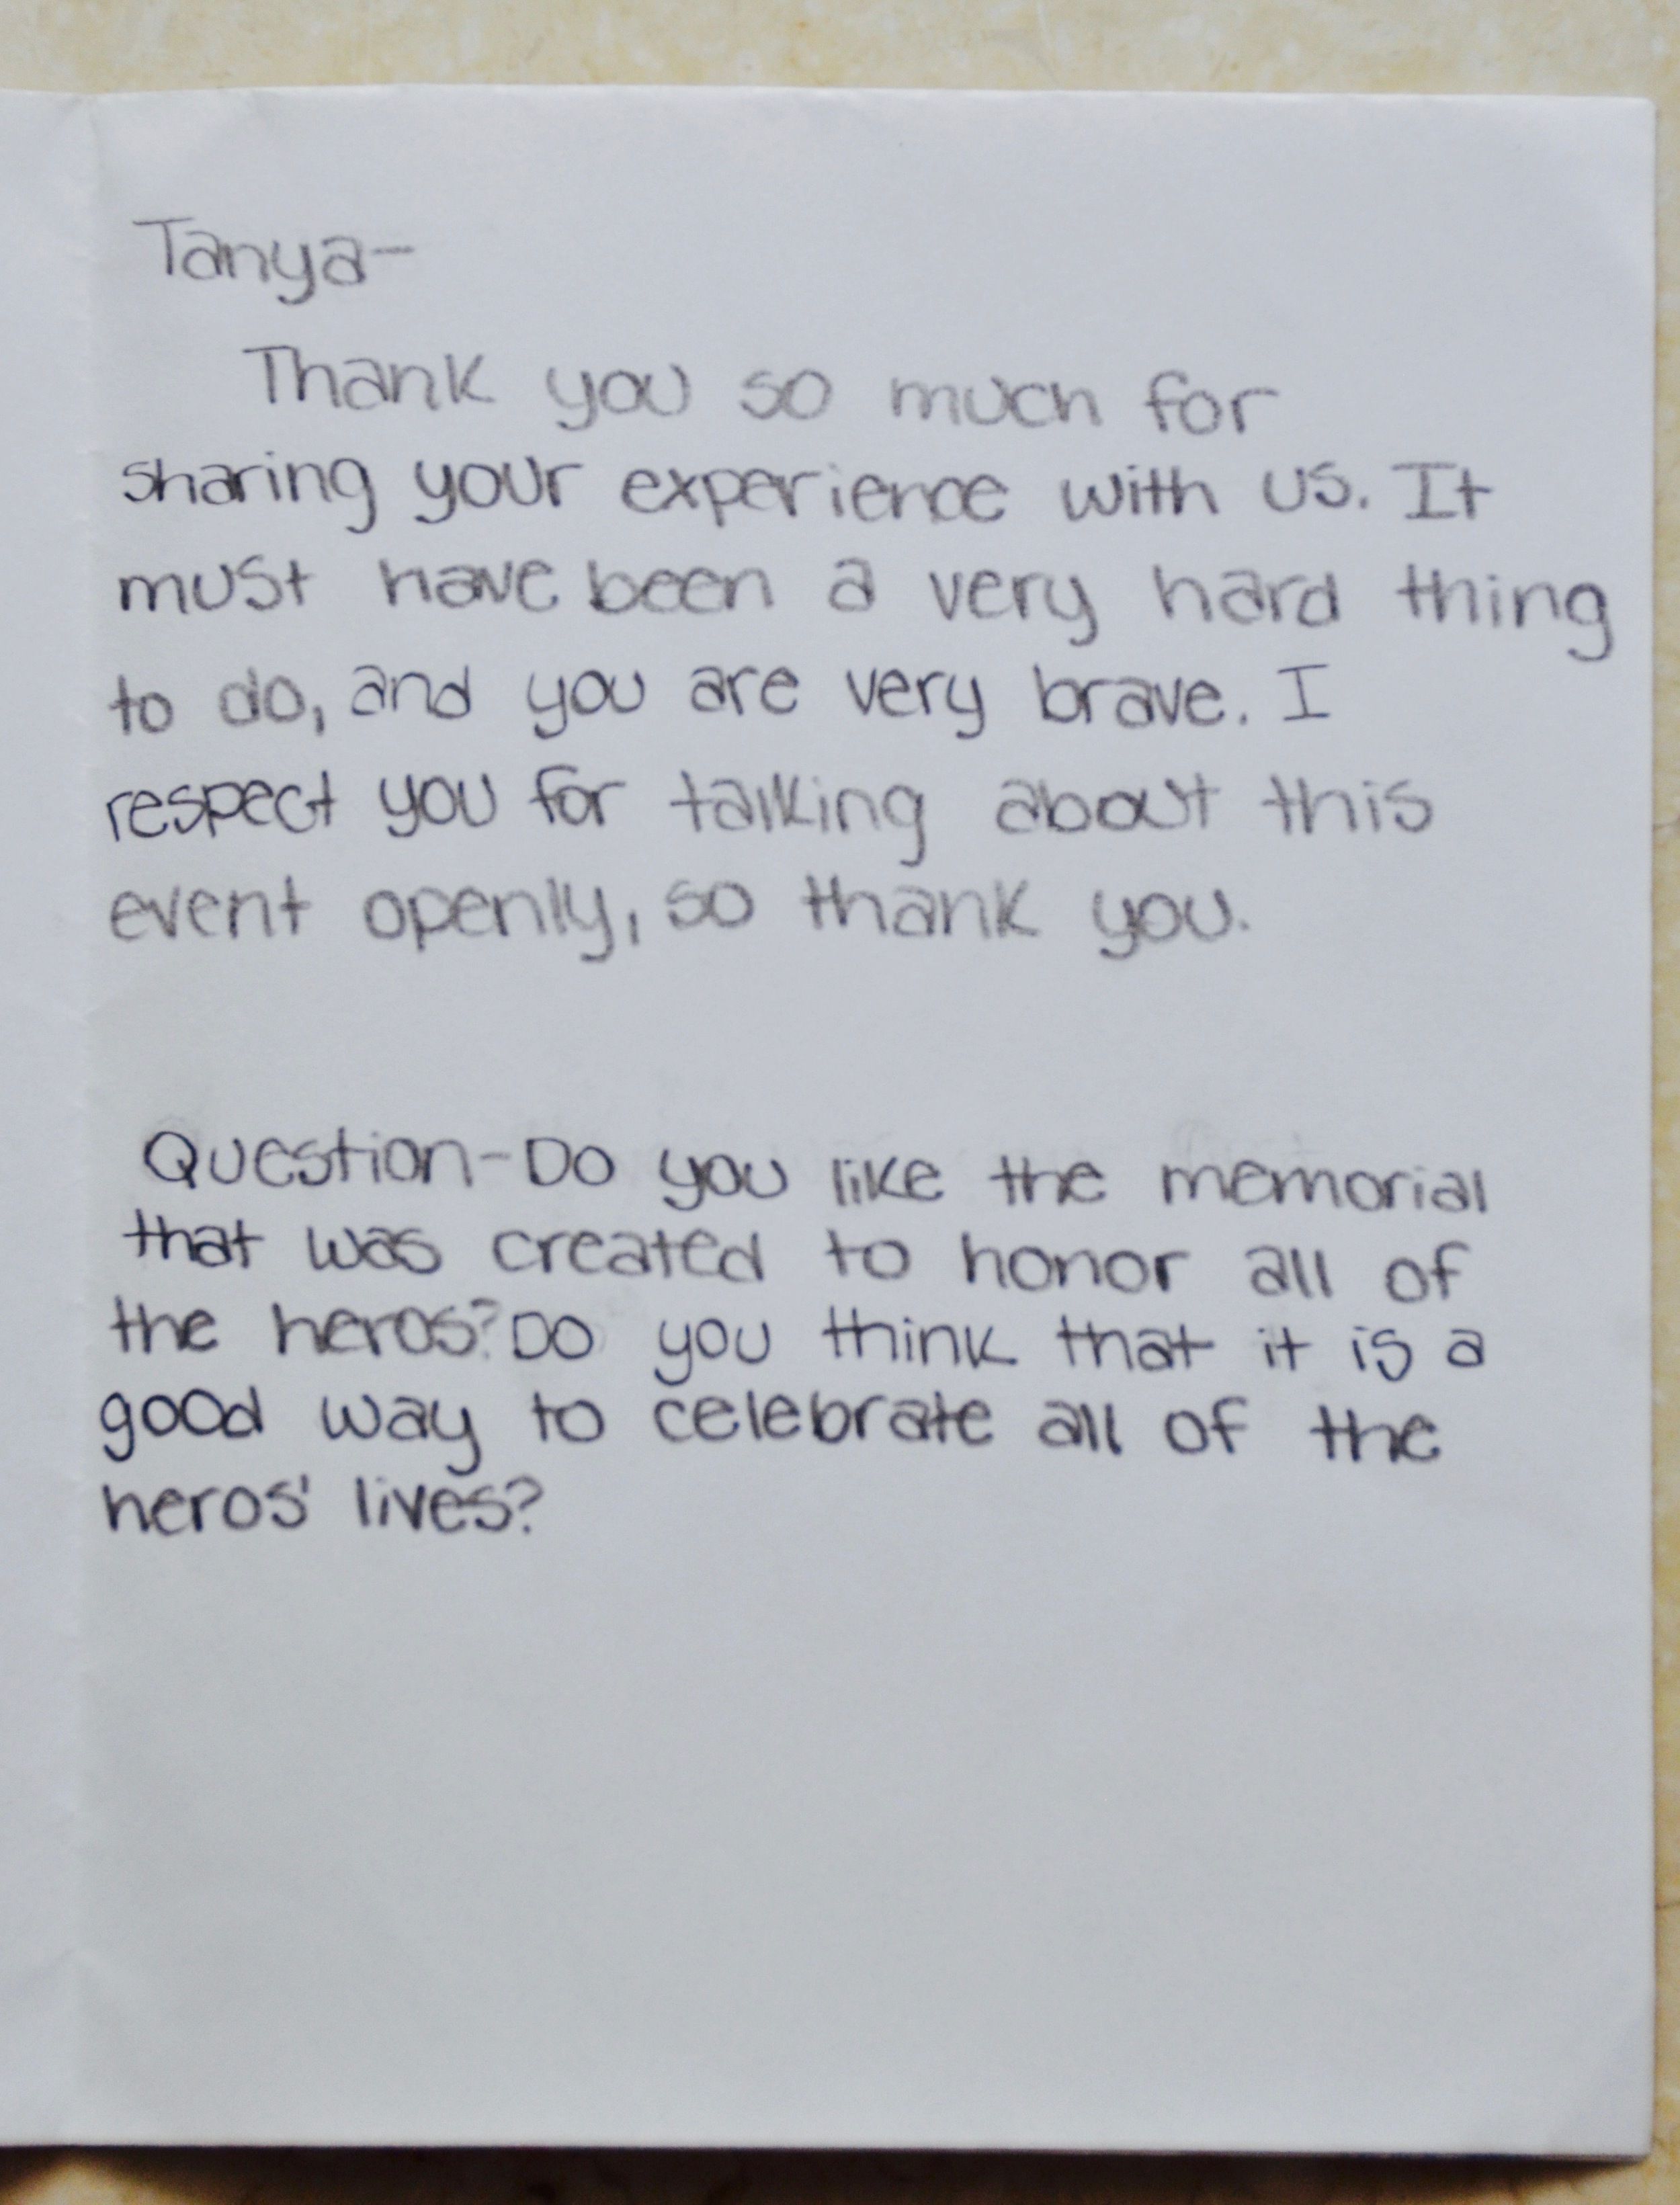 Tanya-
Thank you so much for
sharing your experience with us. It
must have been a very hard thing
to do, and you are very brave. I
respect you for talking about this
event openly, so thank you.
Question-Do you like the memorial
that was created to honor all of
the heros? Do you think that it is a
good way to celebrate all of the
heros' lives?